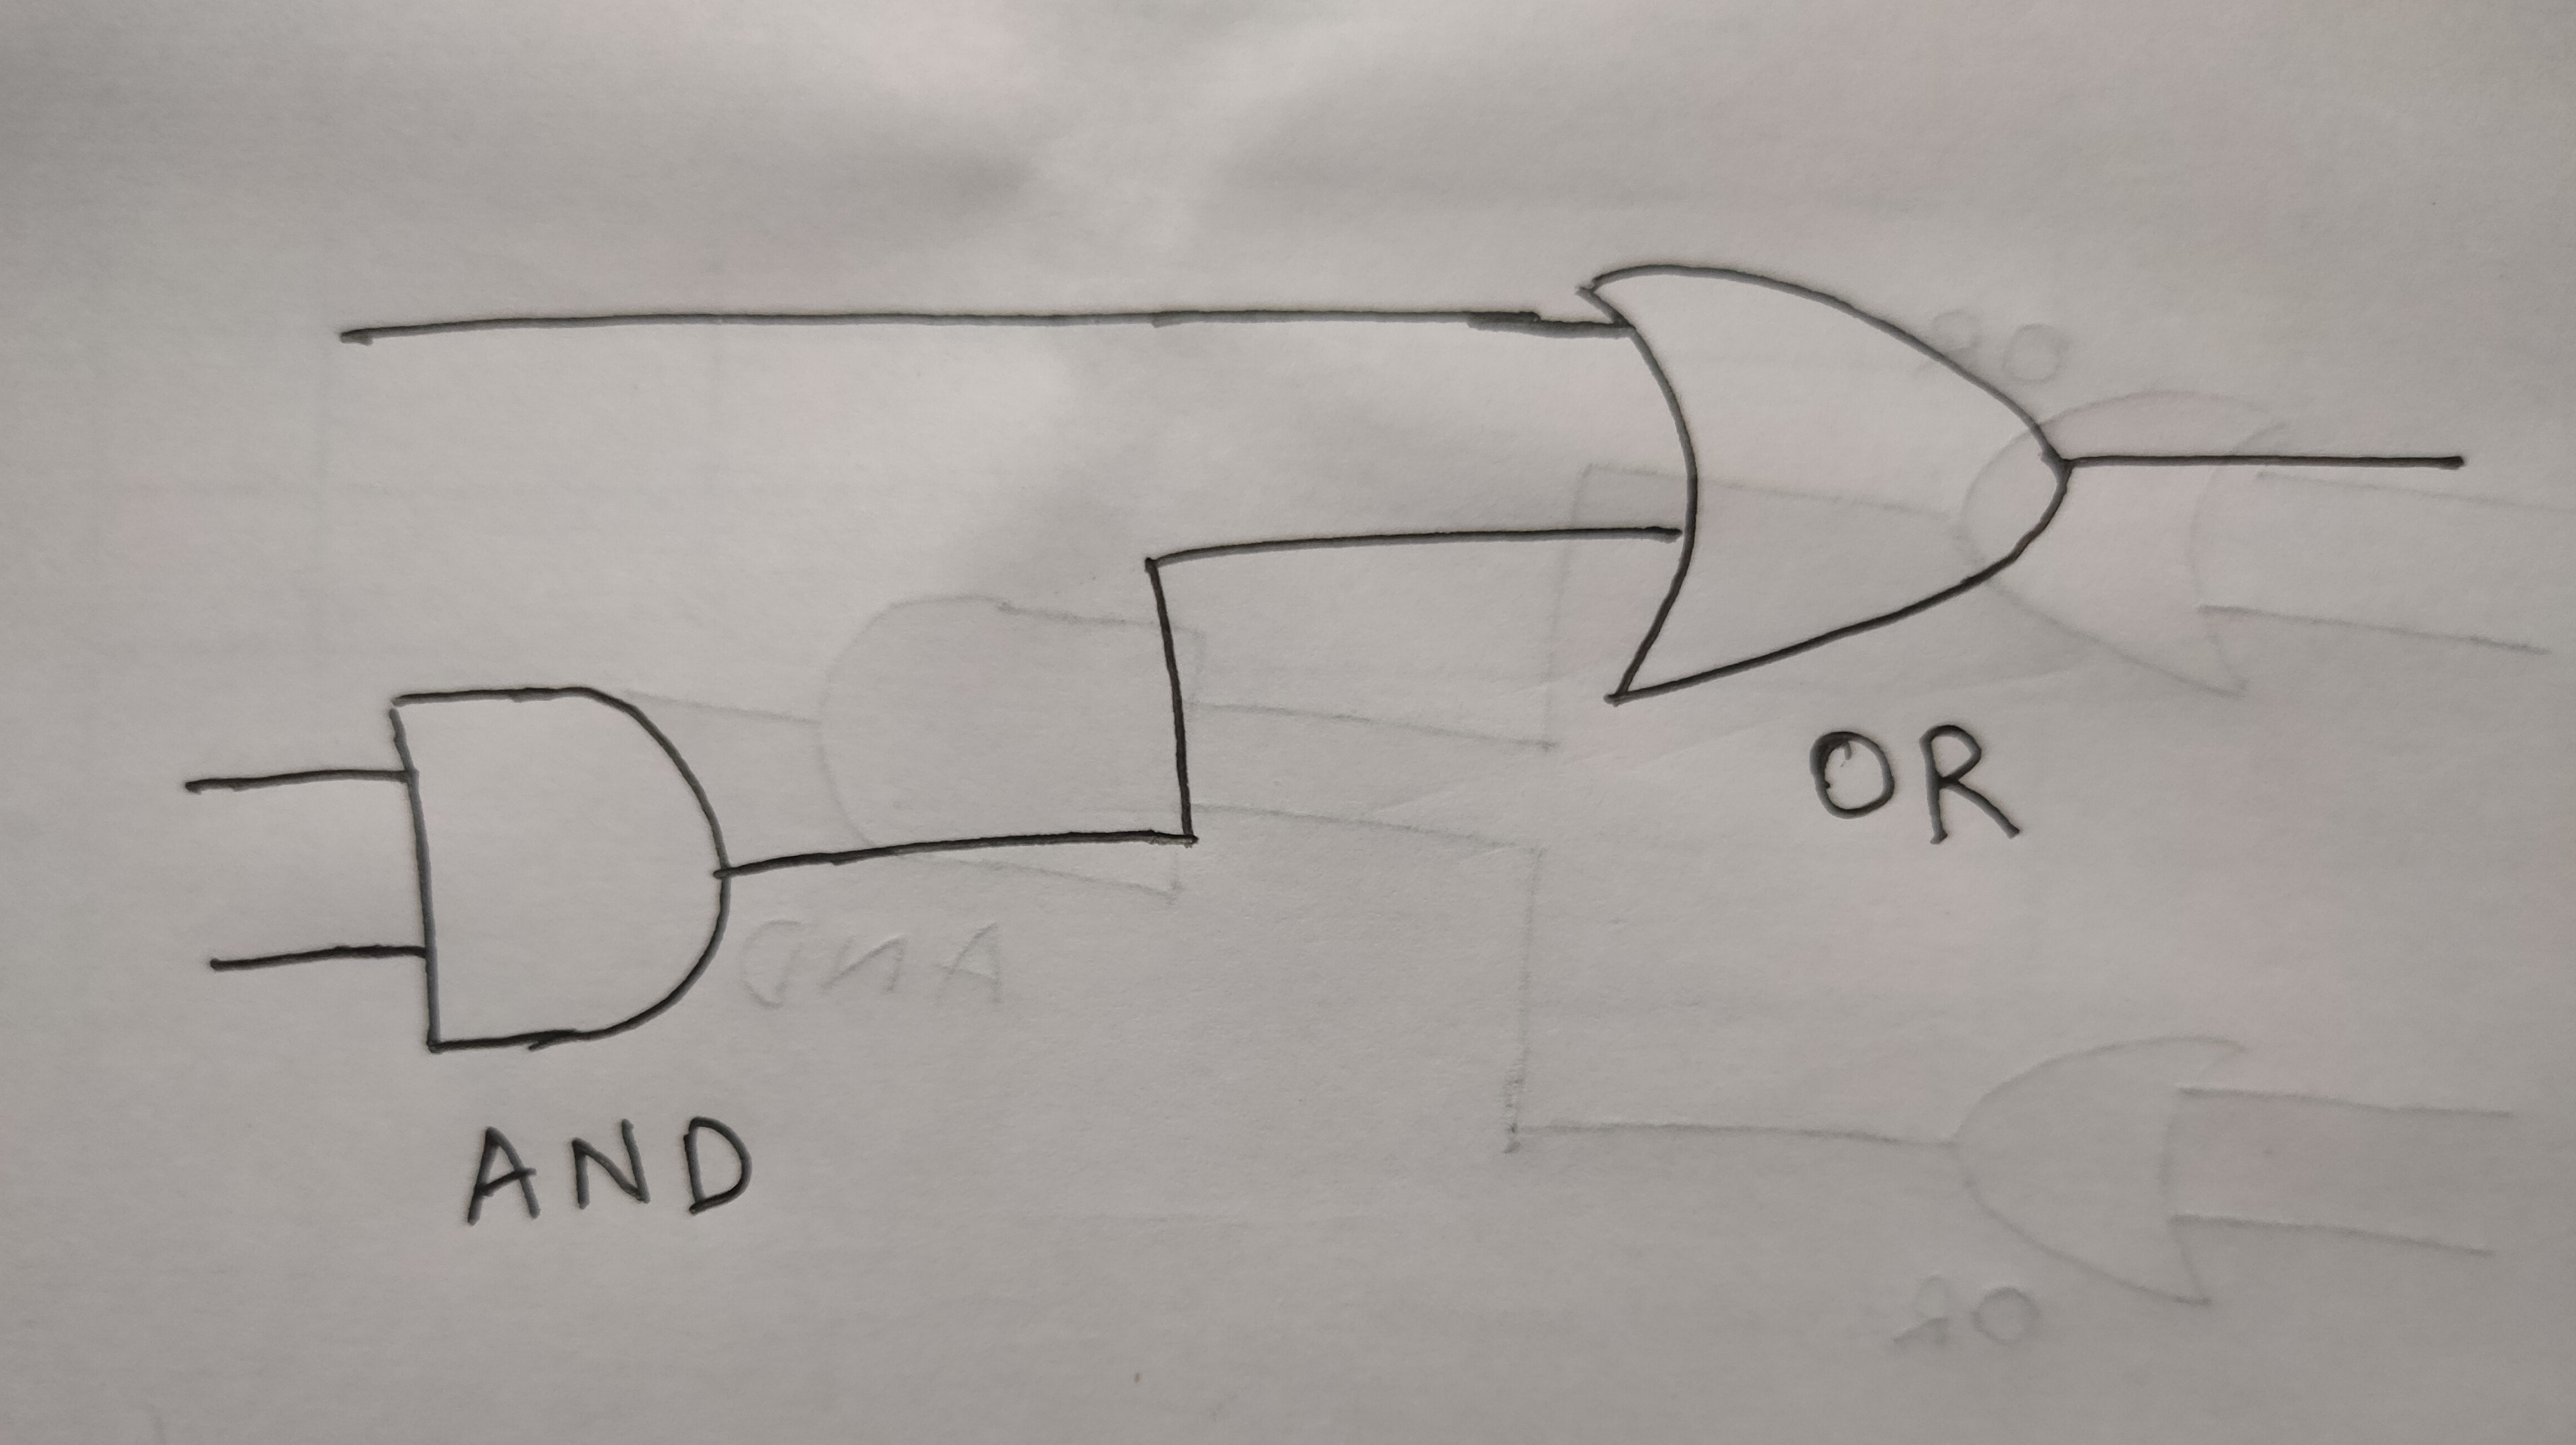 OR
AND